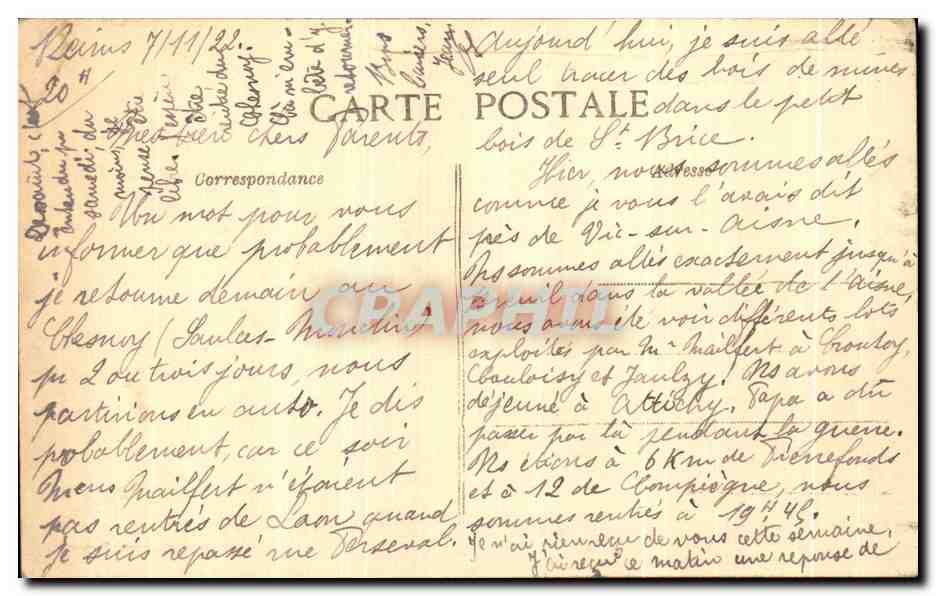 Reims 7/11/22.
20 H
CARTE POSTALE
Correspondance
Adresse
Mes bien chers Parents,
Un mot pour vous
informer que probablement
je retourne demain au
Chesnoy (Saulces-Monclin)
pr 2 ou trois jours, nous
partirions en auto. Je dis
probablement, car ce soir
Mrs Mailfert n'étaient
pas rentrés de Laon quand
je suis repassé rue Perseval.
Aujourd'hui, je suis allé
seul tracer des bois de mines
dans le petit
bois de St Brice.
Hier, nous sommes allés
comme je vous l'avais dit
près de Vic-sur-Aisne.
Ns sommes allés exactement jusqu'à
Breuil dans la vallée de l'Aisne,
nous avons été voir différents lots
exploités par Mr Mailfert à Croutoy,
Couloisy et Jaulzy. Ns avons
déjeuné à Attichy. Papa a dû
passer par là pendant la guerre.
Ns étions à 6 Km de Pierrefonds
et à 12 de Compiègne, nous
sommes rentrés à 19H45.
Je n'ai rien reçu de vous cette semaine.
J'ai reçu ce matin une réponse de
samedi
moins
pense être
libre
Chesnoy.
retourner.
baisers,
Jean
CPAPHIL